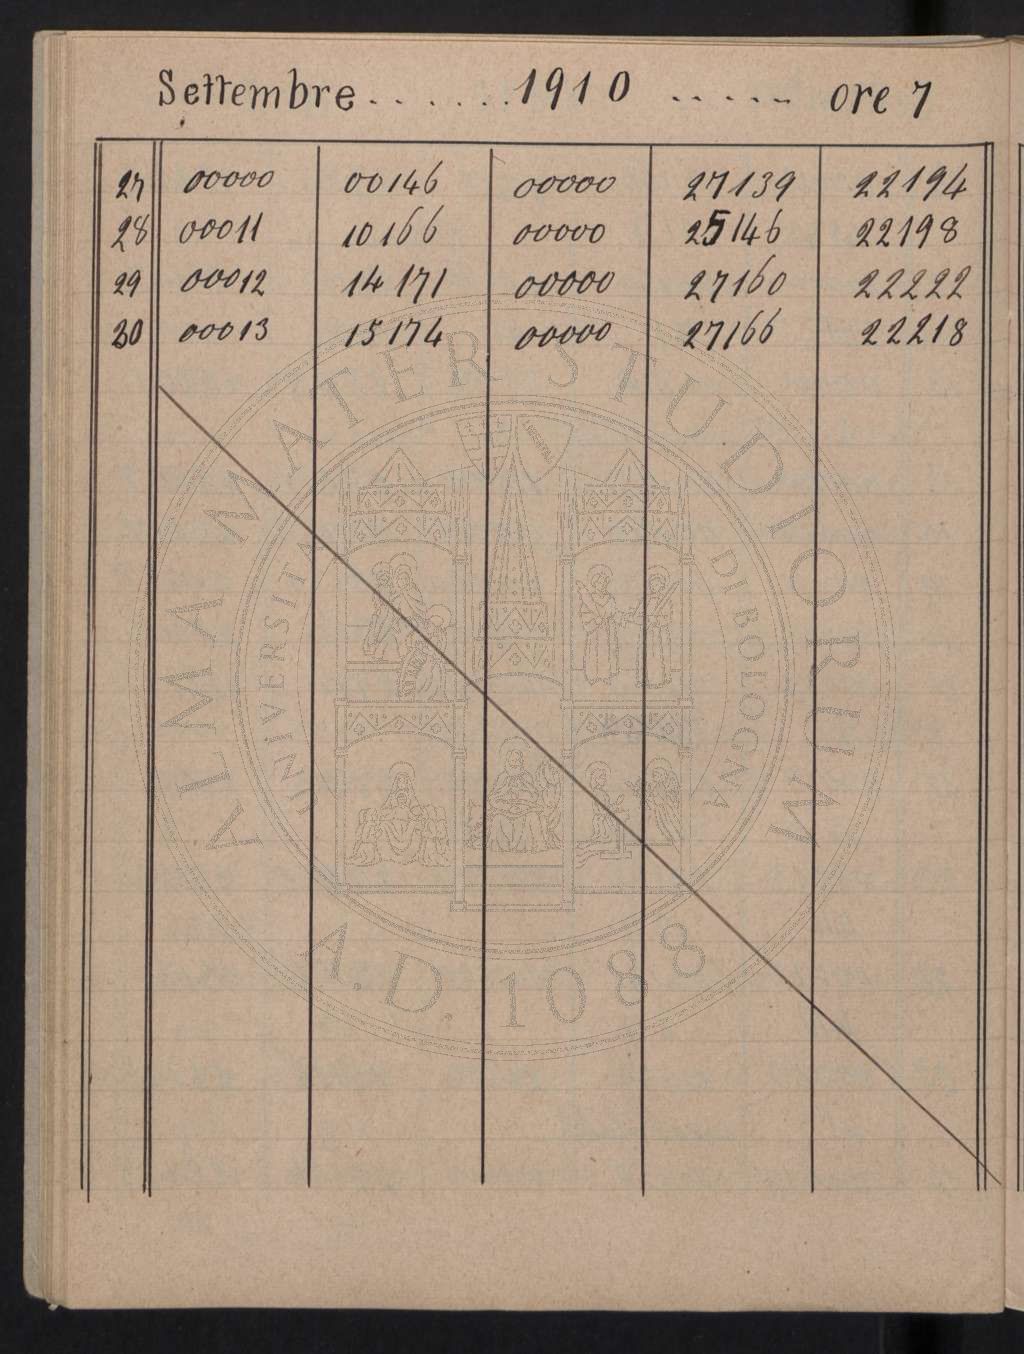 Settembre . . . . . . . 1910 . . . . . ore 7
27 00000 00146 00000 27139 22194
28 00011 10166 00000 25146 22198
29 00012 14171 00000 27160 22222
30 00013 15174 00000 27166 22218
ALMA MATER STUDIORUM
UNIVERSITÀ DI BOLOGNA
A.D. 1088